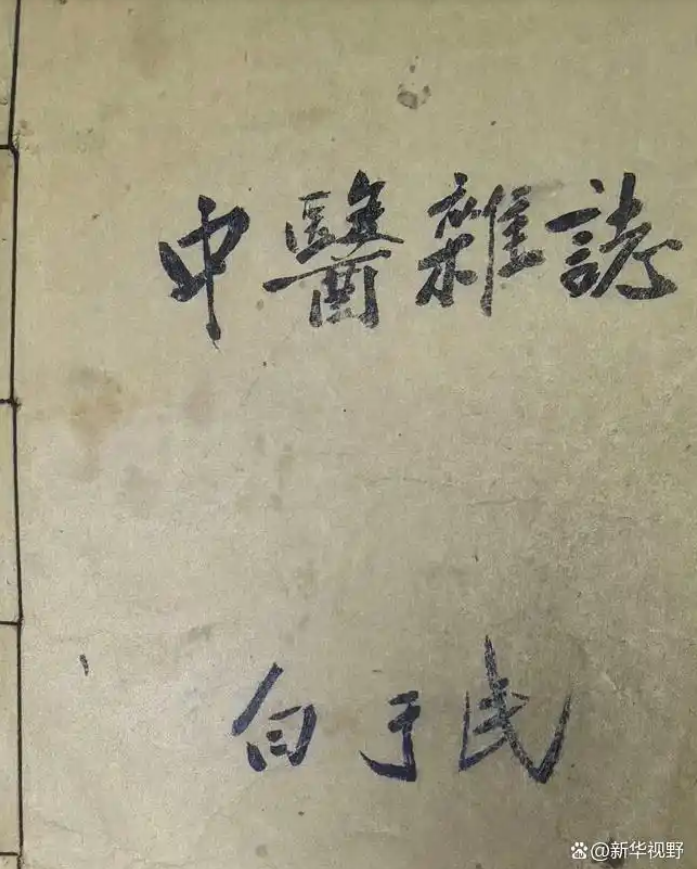 中醫雜誌
白于民
@新华视野